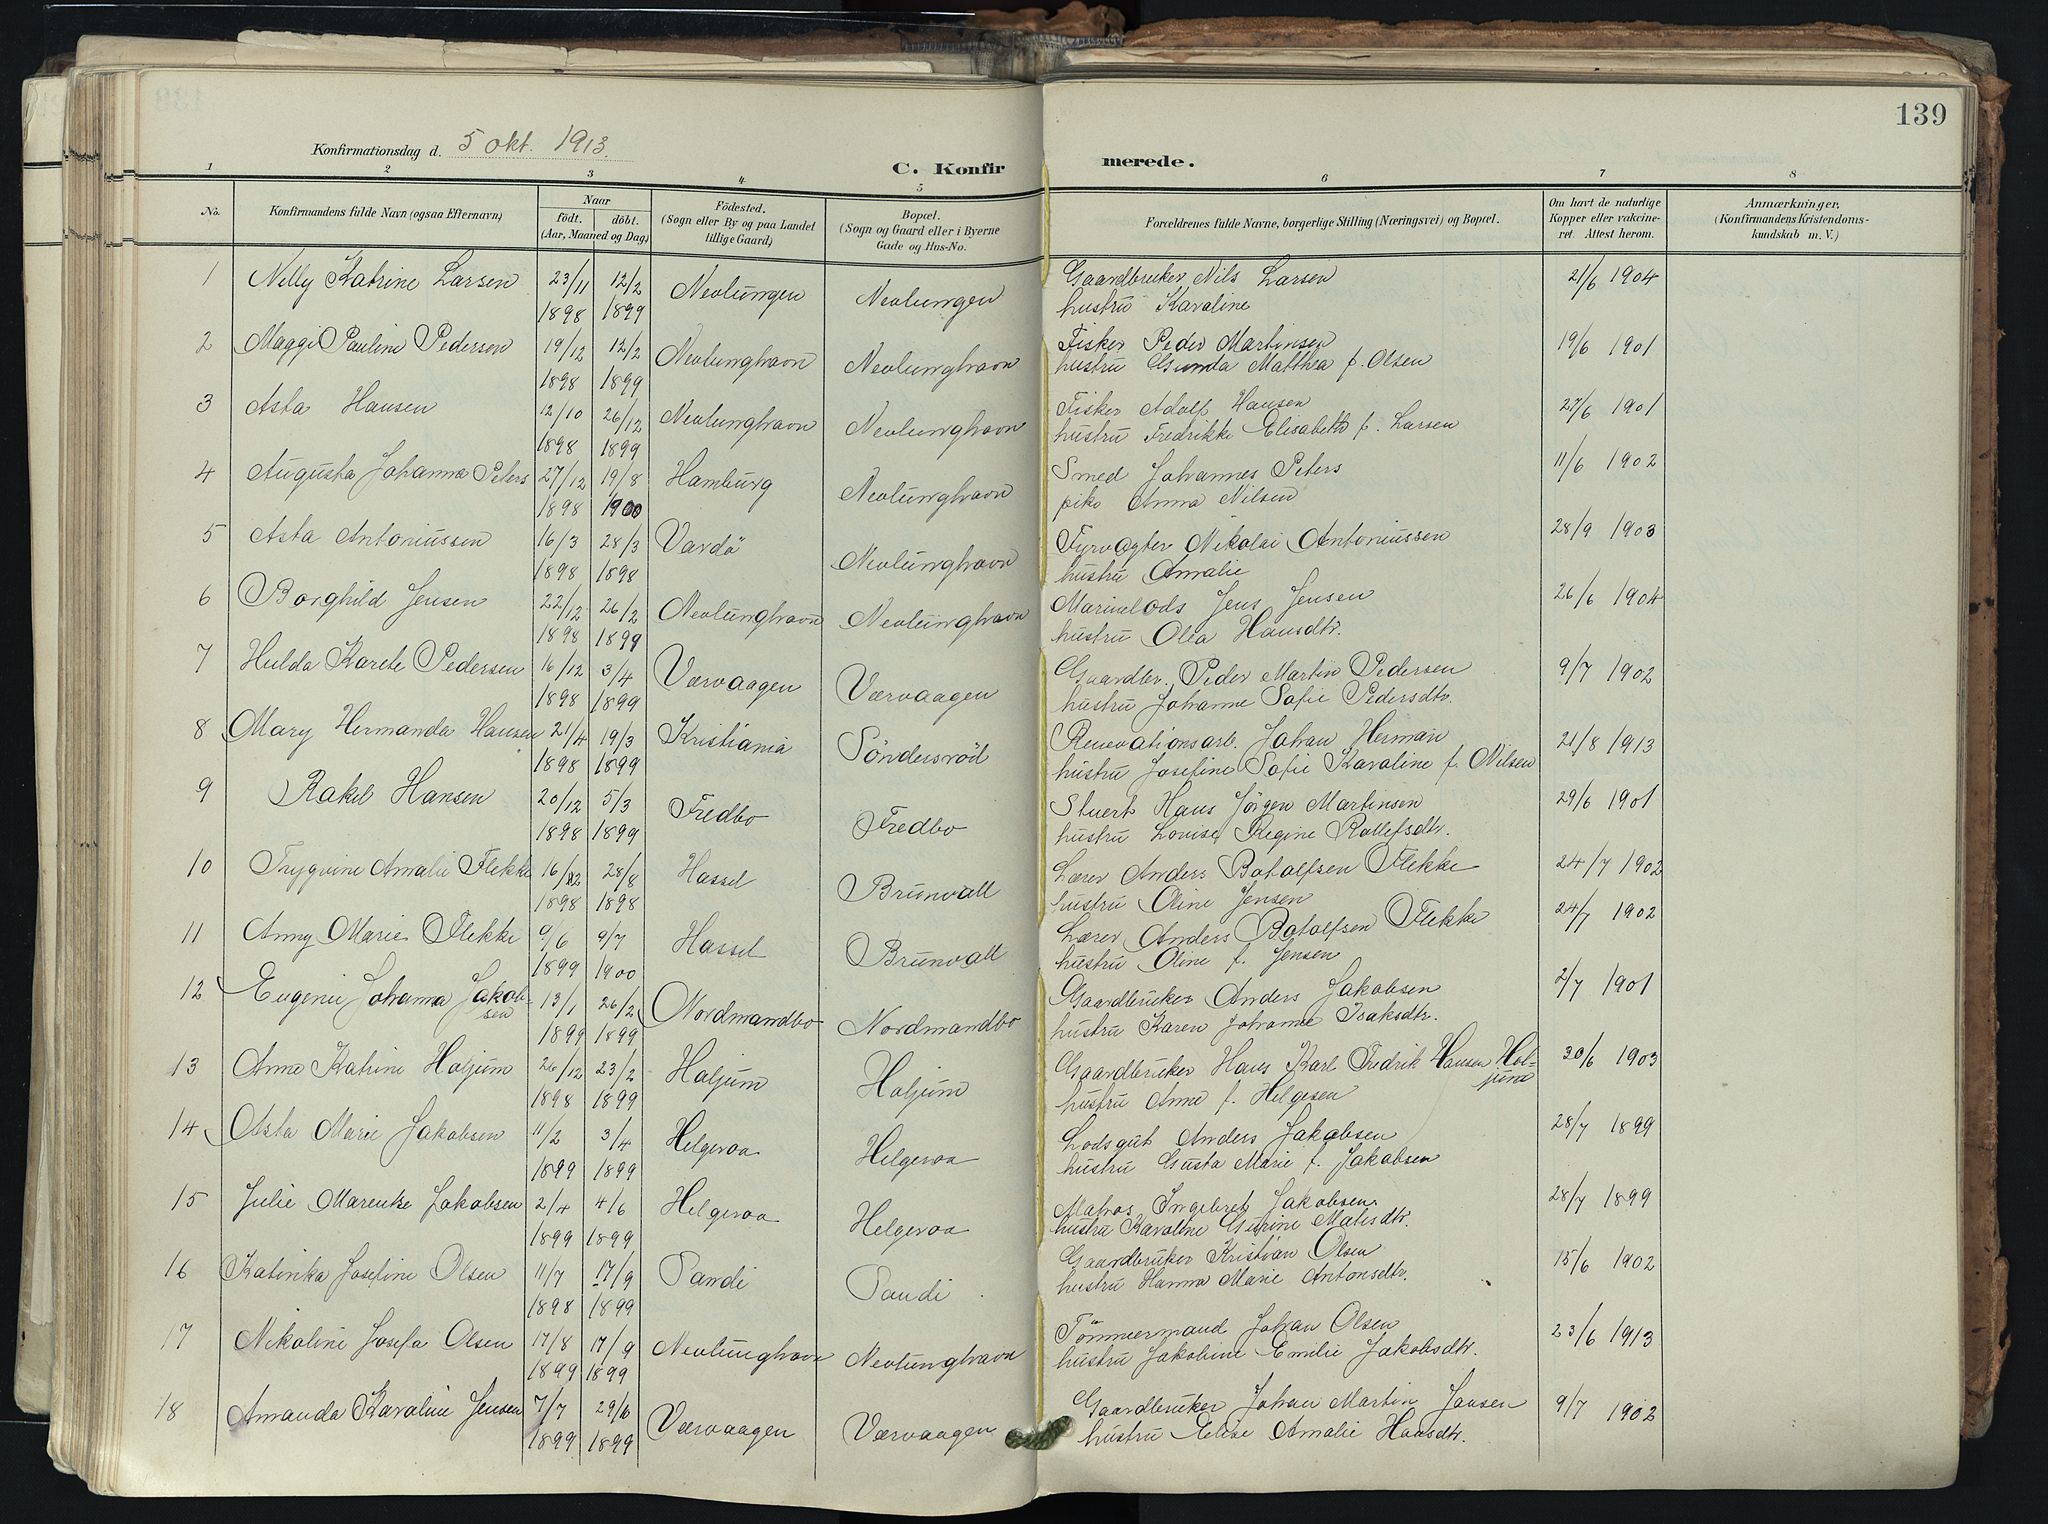 139
Konfirmationsdag d. 5 okt. 1913.
C. Konfirmerede.
1 2 3 4 5 6 7 8
No. Konfirmandens fulde Navn (ogsaa Efternavn) Naar født. døbt. (Aar, Maaned og Dag) Fødested. (Sogn eller By og paa Landet tillige Gaard) Bopæl. (Sogn og Gaard eller i Byerne Gade og Hus-No. Forældrenes fulde Navne, borgerlige Stilling (Næringsvei) og Bopæl. Om havt de naturlige Kopper eller vakcineret. Attest herom. Anmærkninger, (Konfirmandens Kristendomskundskab m. V.)
1 Nelly Katrine Larsen 23/11 12/2 Nevlungen Nevlungen Gaardbruker Nils Larsen 21/6 1904
1898 1899 hustru Karaline
2 Maggi Pauline Pedersen 19/12 12/2 Nevlunghavn Nevlunghavn Fisker Peder Martinsen 19/6 1901
1898 1899 hustru Gunda Mathea f. Olsen
3 Asta Hansen 12/10 26/12 Nevlunghavn Nevlunghavn Fisker Adolf Hansen 27/6 1901
1898 1899 hustru Fredrikke Elisabeth f. Larsen
4 Augusta Johanna Peters 27/12 19/8 Hamburg Nevlunghavn Smed Johannes Peters 11/6 1902
1898 1900 pike Anna Nilsen
5 Asta Antoniussen 16/3 28/3 Vardö Nevlunghavn Fyrvogter Nikolai Antoniussen 28/9 1903
1898 1898 hustru Amalie
6 Borghild Jensen 22/12 26/2 Nevlunghavn Nevlunghavn Marinelods Jens Jensen 26/6 1904
1898 1899 hustru Olea Hansdtr.
7 Hulda Karele Pedersen 16/12 3/4 Værvaagen Værvaagen Gaardbr. Peder Martin Pedersen 9/7 1902
1898 1899 hustru Johanne Sofie Pedersdtr.
8 Mary Hermanda Hansen 21/4 19/3 Kristiania Söndersröd Renovationsarb. Johan Herman 21/8 1913
1898 1899 hustru Josefine Sofie Karaline f. Nilsen
9 Rakel Hansen 20/12 5/3 Fredbo Fredbo Stuert Hans Jörgen Martinsen 29/6 1901
1898 1899 hustru Louise Regine Rollefsdtr.
10 Trygvine Amalie Flekke 16/12 28/8 Hassel Brunvall Lærer Anders Botolfsen Flekke 24/7 1902
1898 1898 hustru Oline Jensen
11 Anny Marie Flekke 9/6 9/7 Hassel Brunvall Lærer Anders Botolfsen Flekke 24/7 1902
1899 1900 hustru Oline f. Jensen
12 Eugenie Johanna Jakobsen 13/1 26/2 Nordmandbo Nordmandbo Gaardbruker Anders Jakobsen 2/7 1901
1899 1899 hustru Karen Johanne Isaksdtr.
13 Anna Katrine Holjum 26/12 23/2 Holjum Holjum Gaardbruker Hans Karl Fredrik Hansen Holjum 30/6 1903
1898 1899 hustru Anne f. Helgesen
14 Asta Marie Jakobsen 11/2 3/4 Helgeroa Helgeroa Lodsgut Anders Jakobsen 28/7 1899
1899 1899 hustru Gusta Marie f. Jakobsen
15 Julie Marentse Jakobsen 2/4 4/6 Helgeroa Helgeroa Matros Ingebret Jakobsen 28/7 1899
1899 1899 hustru Karaline Gurine Matisdtr.
16 Katinka Josefine Olsen 11/7 17/9 Pandi Pandi Gaardbruker Kristian Olsen 15/6 1902
1898 1899 hustru Hanna Marie Antonsdtr.
17 Nikoline Josefa Olsen 17/8 17/9 Nevlunghavn Nevlunghavn Tömmermand Johan Olsen 23/6 1913
1899 1899 hustru Jakobine Emilie Jakobsdtr.
18 Amanda Karaline Jensen 7/7 29/6 Værvaagen Værvaagen Gaardbruker Johan Martin Jansen 9/7 1902
1899 1899 hustru Elise Amalie Hansdtr.